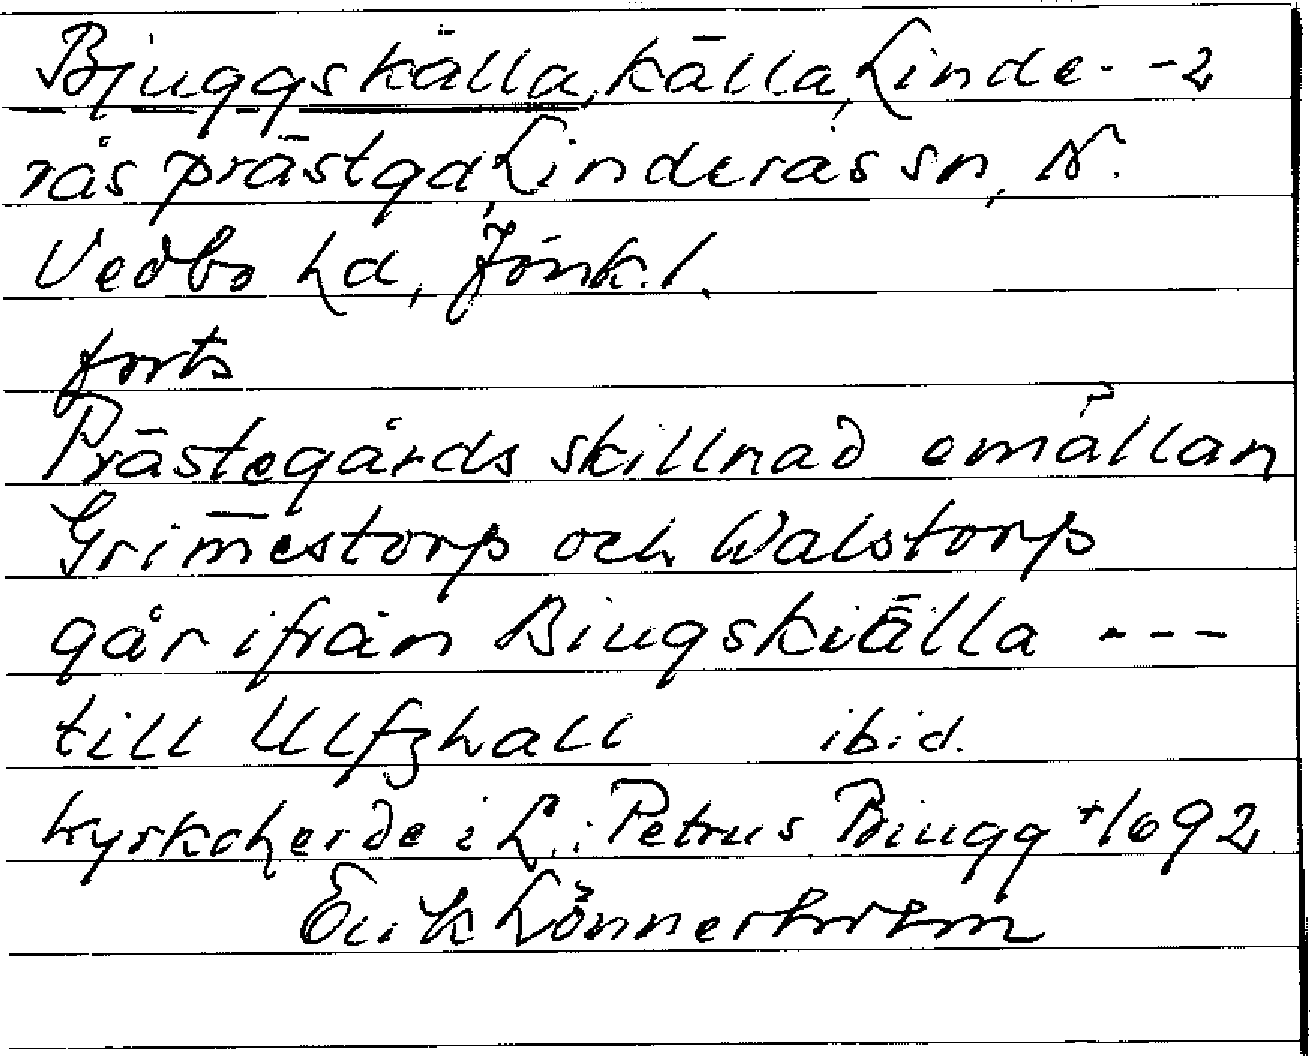 Bjuggskälla, källa, Linde- -2
rås prästgd, Linderås sn, N.
Vedbo hd, Jönk. l.
forts
Prästegårds skillnad emällan
Grimestorp och Walstorp
går ifrån Biugskiälla ---
till Ulfzhall ibid.
kyrkoherde i L.: Petrus Biugg +1692
Erik Lönnerholm